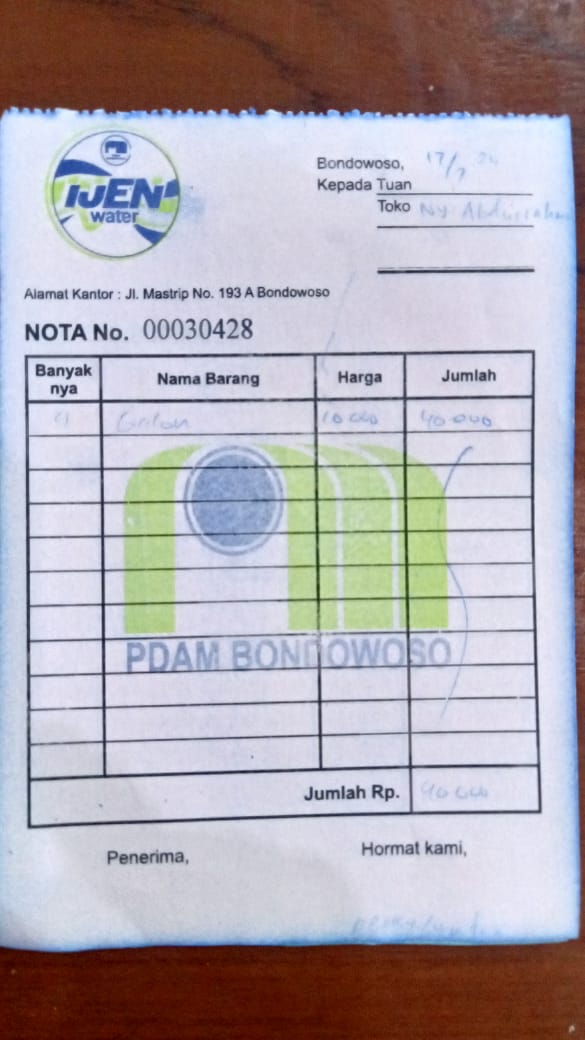 IJEN
water
Bondowoso, 17/7 24
Kepada Tuan
Toko Ny Abdurrahman
Alamat Kantor : Jl. Mastrip No. 193 A Bondowoso
NOTA No. 00030428
Banyak nya Nama Barang Harga Jumlah
4 Galon 10 000 40 000
PDAM BONDOWOSO
Jumlah Rp. 40 000
Penerima, Hormat kami,